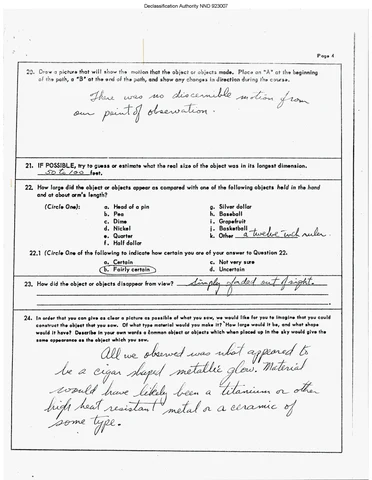 Declassification Authority NND 923007
Page 4
20. Draw a picture that will show the motion that the object or objects made. Place an "A" at the beginning
of the path, a "B" at the end of the path, and show any changes in direction during the course.
There was no discernible motion from
our point of observation.
21. IF POSSIBLE, try to guess or estimate what the real size of the object was in its longest dimension.
50 to 100 feet.
22. How large did the object or objects appear as compared with one of the following objects held in the hand
and at about arm's length?
(Circle One): a. Head of a pin g. Silver dollar
b. Pea h. Baseball
c. Dime i. Grapefruit
d. Nickel j. Basketball
e. Quarter k. Other a "twelve" inch ruler.
f. Half dollar
22.1 (Circle One of the following to indicate how certain you are of your answer to Question 22.
a. Certain c. Not very sure
b. Fairly certain d. Uncertain
23. How did the object or objects disappear from view? Simply faded out of sight.
24. In order that you can give as clear a picture as possible of what you saw, we would like for you to imagine that you could
construct the object that you saw. Of what type material would you make it? How large would it be, and what shape
would it have? Describe in your own words a common object or objects which when placed up in the sky would give the
same appearance as the object which you saw.
All we observed was what appeared to
be a cigar shaped metallic glow. Material
would have likely been a titanium or other
high heat resistant metal or a ceramic of
some type.